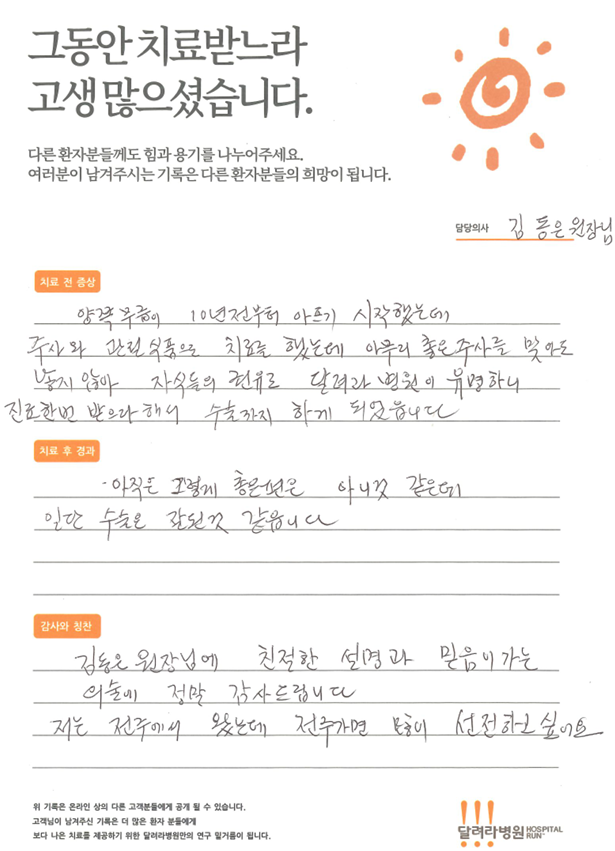 그동안 치료받느라
고생 많으셨습니다.
다른 환자분들께도 힘과 용기를 나누어주세요.
여러분이 남겨주시는 기록은 다른 환자분들의 희망이 됩니다.
담당의사 김동은 원장님
치료 전 증상
양쪽무릎이 10년전부터 아프기 시작했는데
주사와 관련식품으로 치료를 했는데 아무리 좋은주사를 맞아도
낳지 않아 자식들의 권유로 달려라 병원이 유명하니
진료한번 받으라 해서 수술까지 하게 되었읍니다
치료 후 경과
·아직은 그렇게 좋은편은 아니것 같은데
일단 수술은 잘된것 같읍니다
감사와 칭찬
김동은 원장님에 친절한 설명과 믿음이가는
의술에 정말 감사드립니다
저는 전주에서 왔는데 전주가면 많이 선전하고 싶어요
위 기록은 온라인 상의 다른 고객분들에게 공개 될 수 있습니다.
고객님이 남겨주신 기록은 더 많은 환자 분들에게
보다 나은 치료를 제공하기 위한 달려라병원만의 연구 밑거름이 됩니다.
달려라병원 HOSPITAL RUN